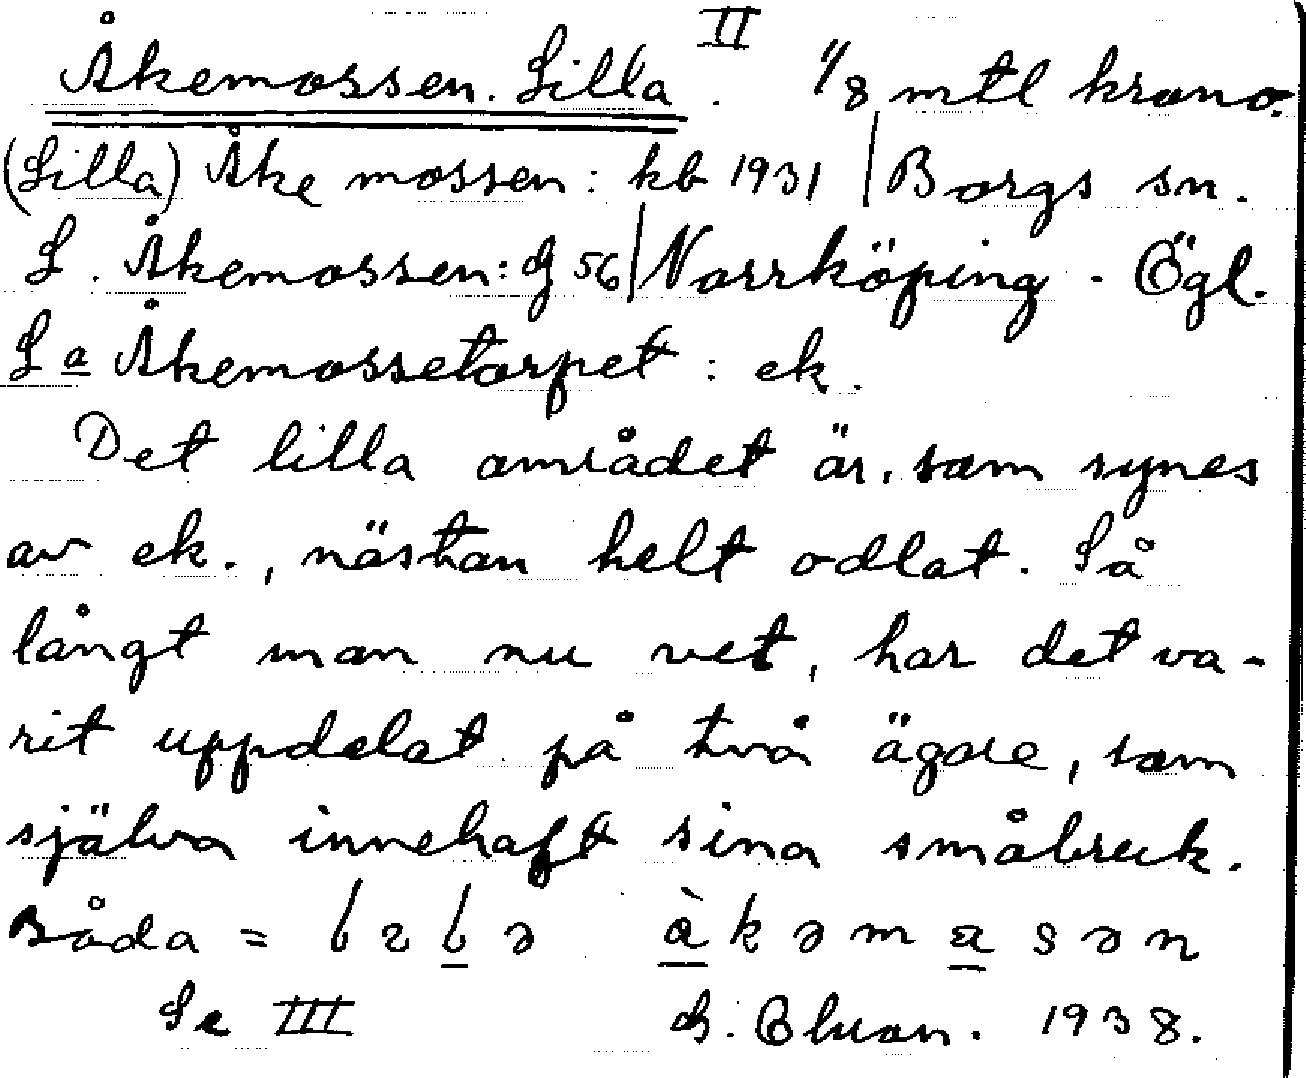 II
Åkemossen. Lilla. 1/8 mtl krono.
(Lilla) Åke mossen: kb 1931 | Borgs sn.
L. Åkemossen: G 56 | Norrköping - Ögl.
La Åkemossetorpet: ek.
Det lilla området är, som synes
av ek., nästan helt odlat. Så
långt man nu vet, har det va-
rit uppdelat på två ägare, som
själva innehaft sina småbruk.
Båda = àkəmasən
Se III 1938.